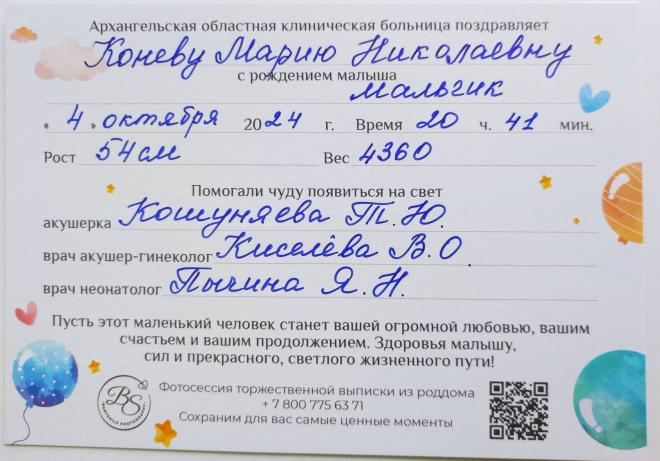 Архангельская областная клиническая больница поздравляет
Коневу Марию Николаевну
с рождением малыша
мальчик
« 4 » октября 2024 г. Время 20 ч. 41 мин.
Рост 54 см Вес 4360
Помогали чуду появиться на свет
акушерка Кошуняева Т.Ю.
врач акушер-гинеколог Киселёва В.О.
врач неонатолог Пычина Я.Н.
Пусть этот маленький человек станет вашей огромной любовью, вашим
счастьем и вашим продолжением. Здоровья малышу,
сил и прекрасного, светлого жизненного пути!
BS
Фотосессия торжественной выписки из роддома
+ 7 800 775 63 71
Сохраним для вас самые ценные моменты